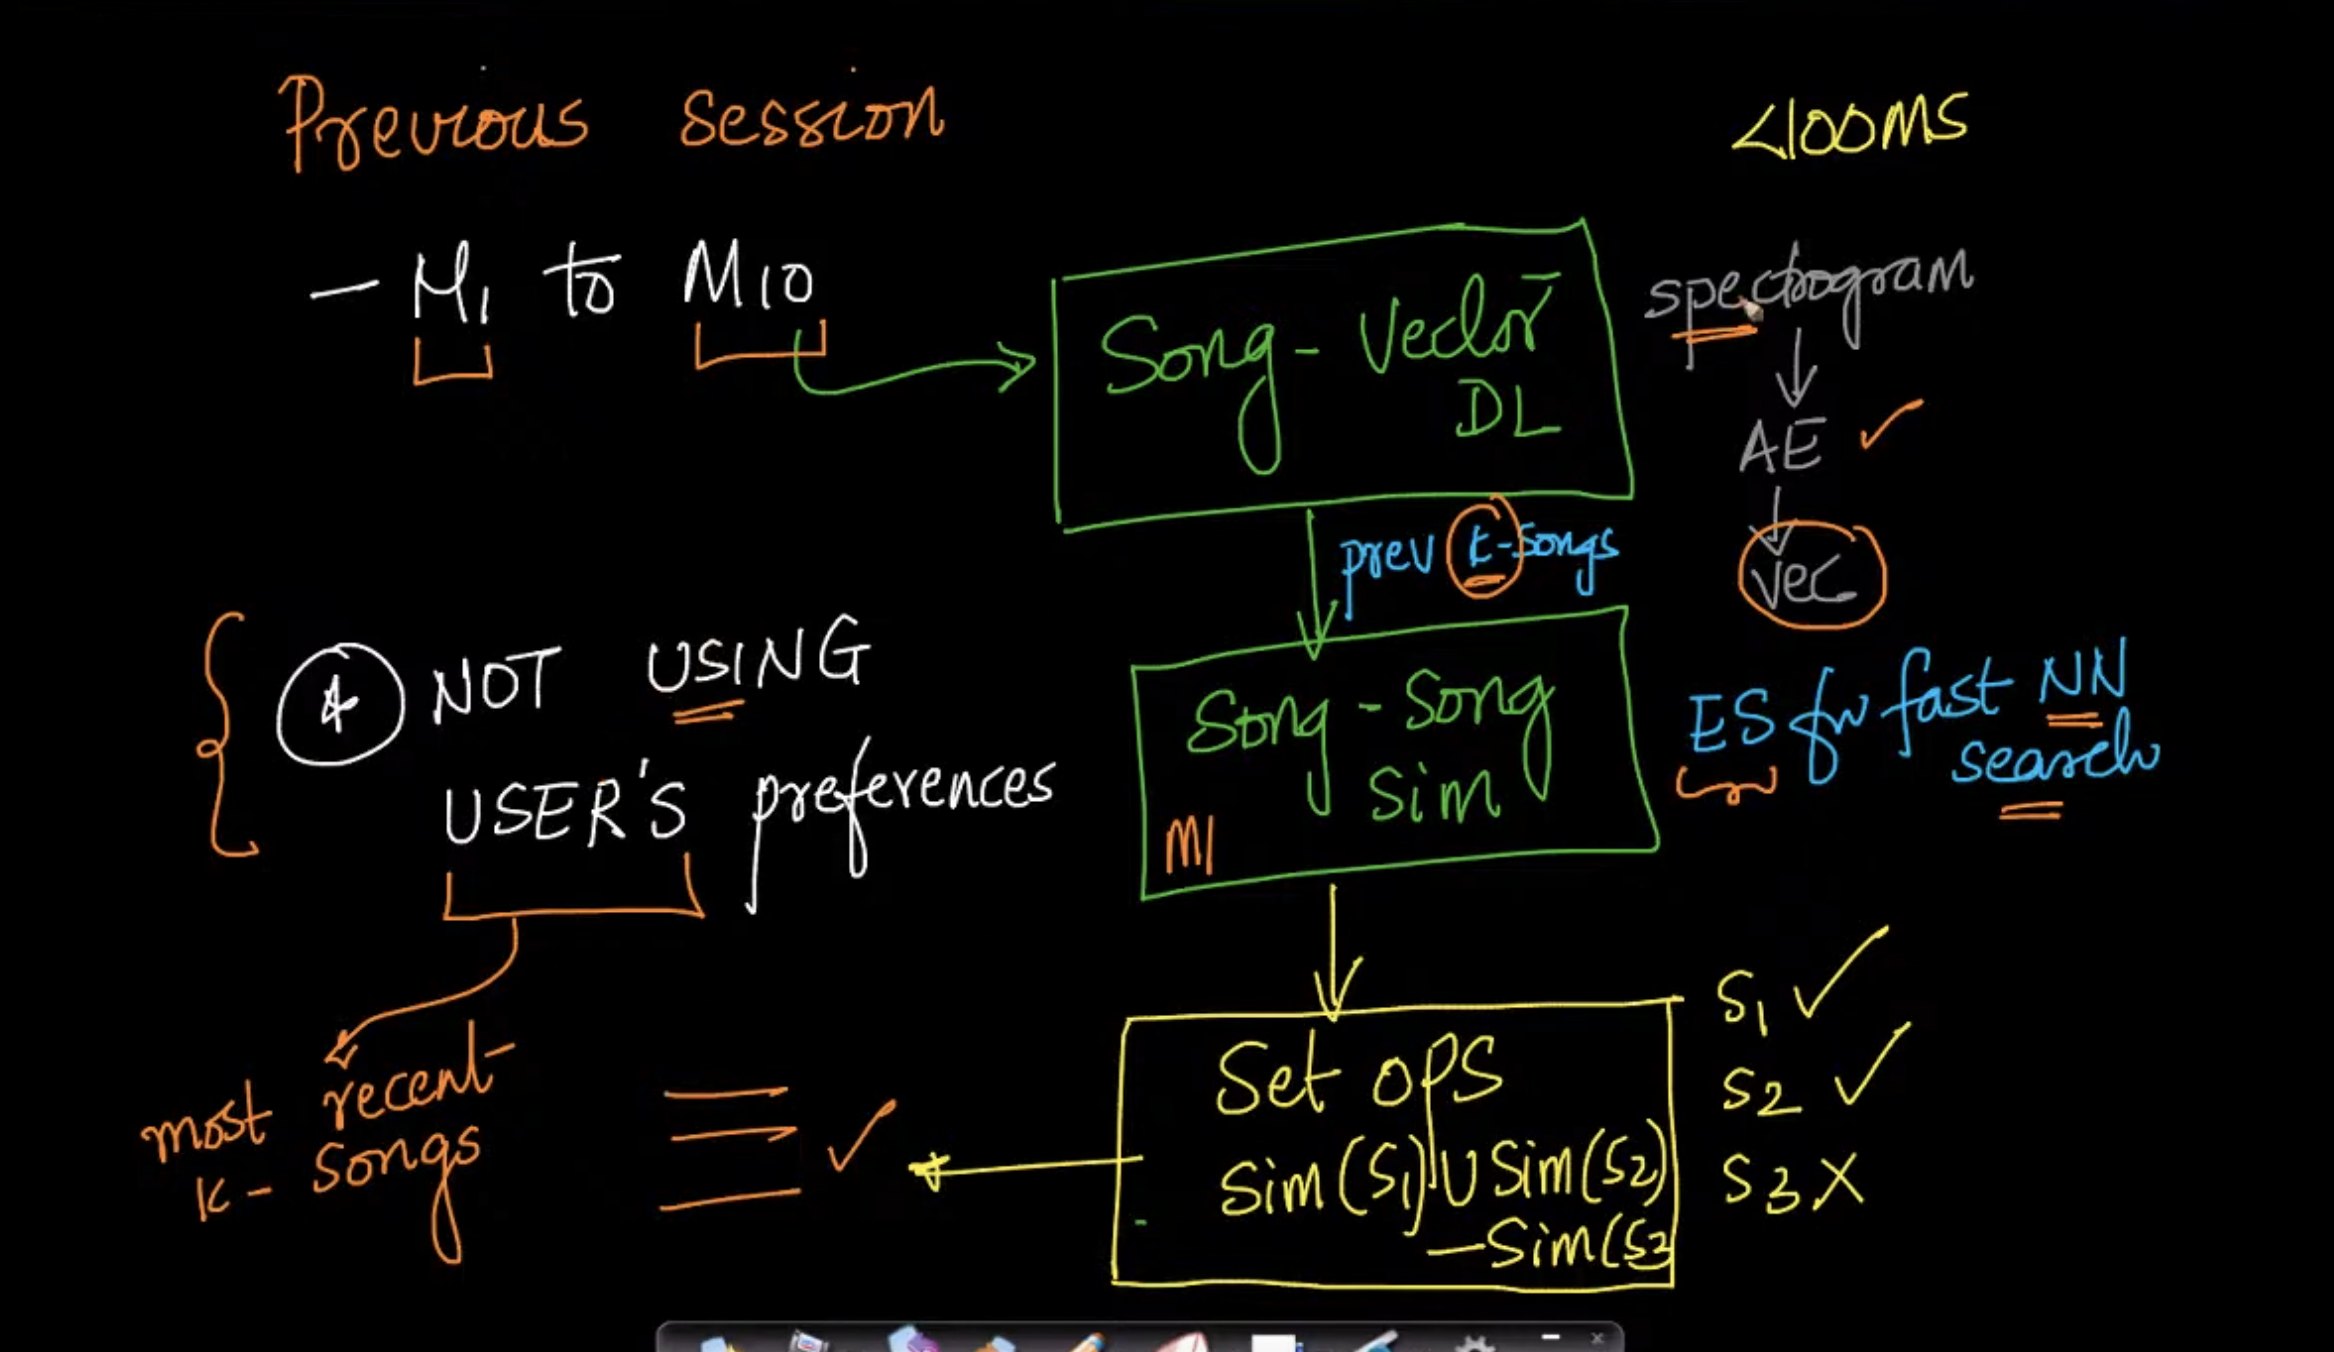 Previous session
<100ms
- M1 to M10
Song-Vector
DL
spectrogram
AE ✓
vec
prev K-songs
* NOT USING
USER'S preferences
Song-Song
Sim
M1
ES for fast NN
search
most recent
K-songs
✓
Set OPS
Sim(S1) ∪ Sim(S2)
-Sim(S3
S1 ✓
S2 ✓
S3 X